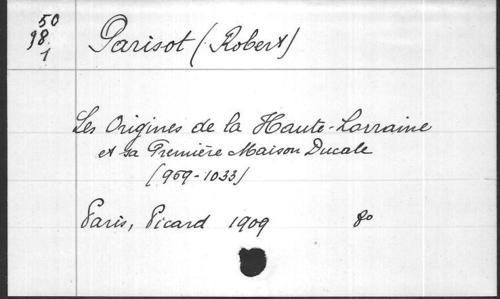 50
98
1
Parisot (Robert)
Les Origines de la Haute-Lorraine
et sa Première Maison Ducale
(959-1033)
Paris, Picard 1909 8o